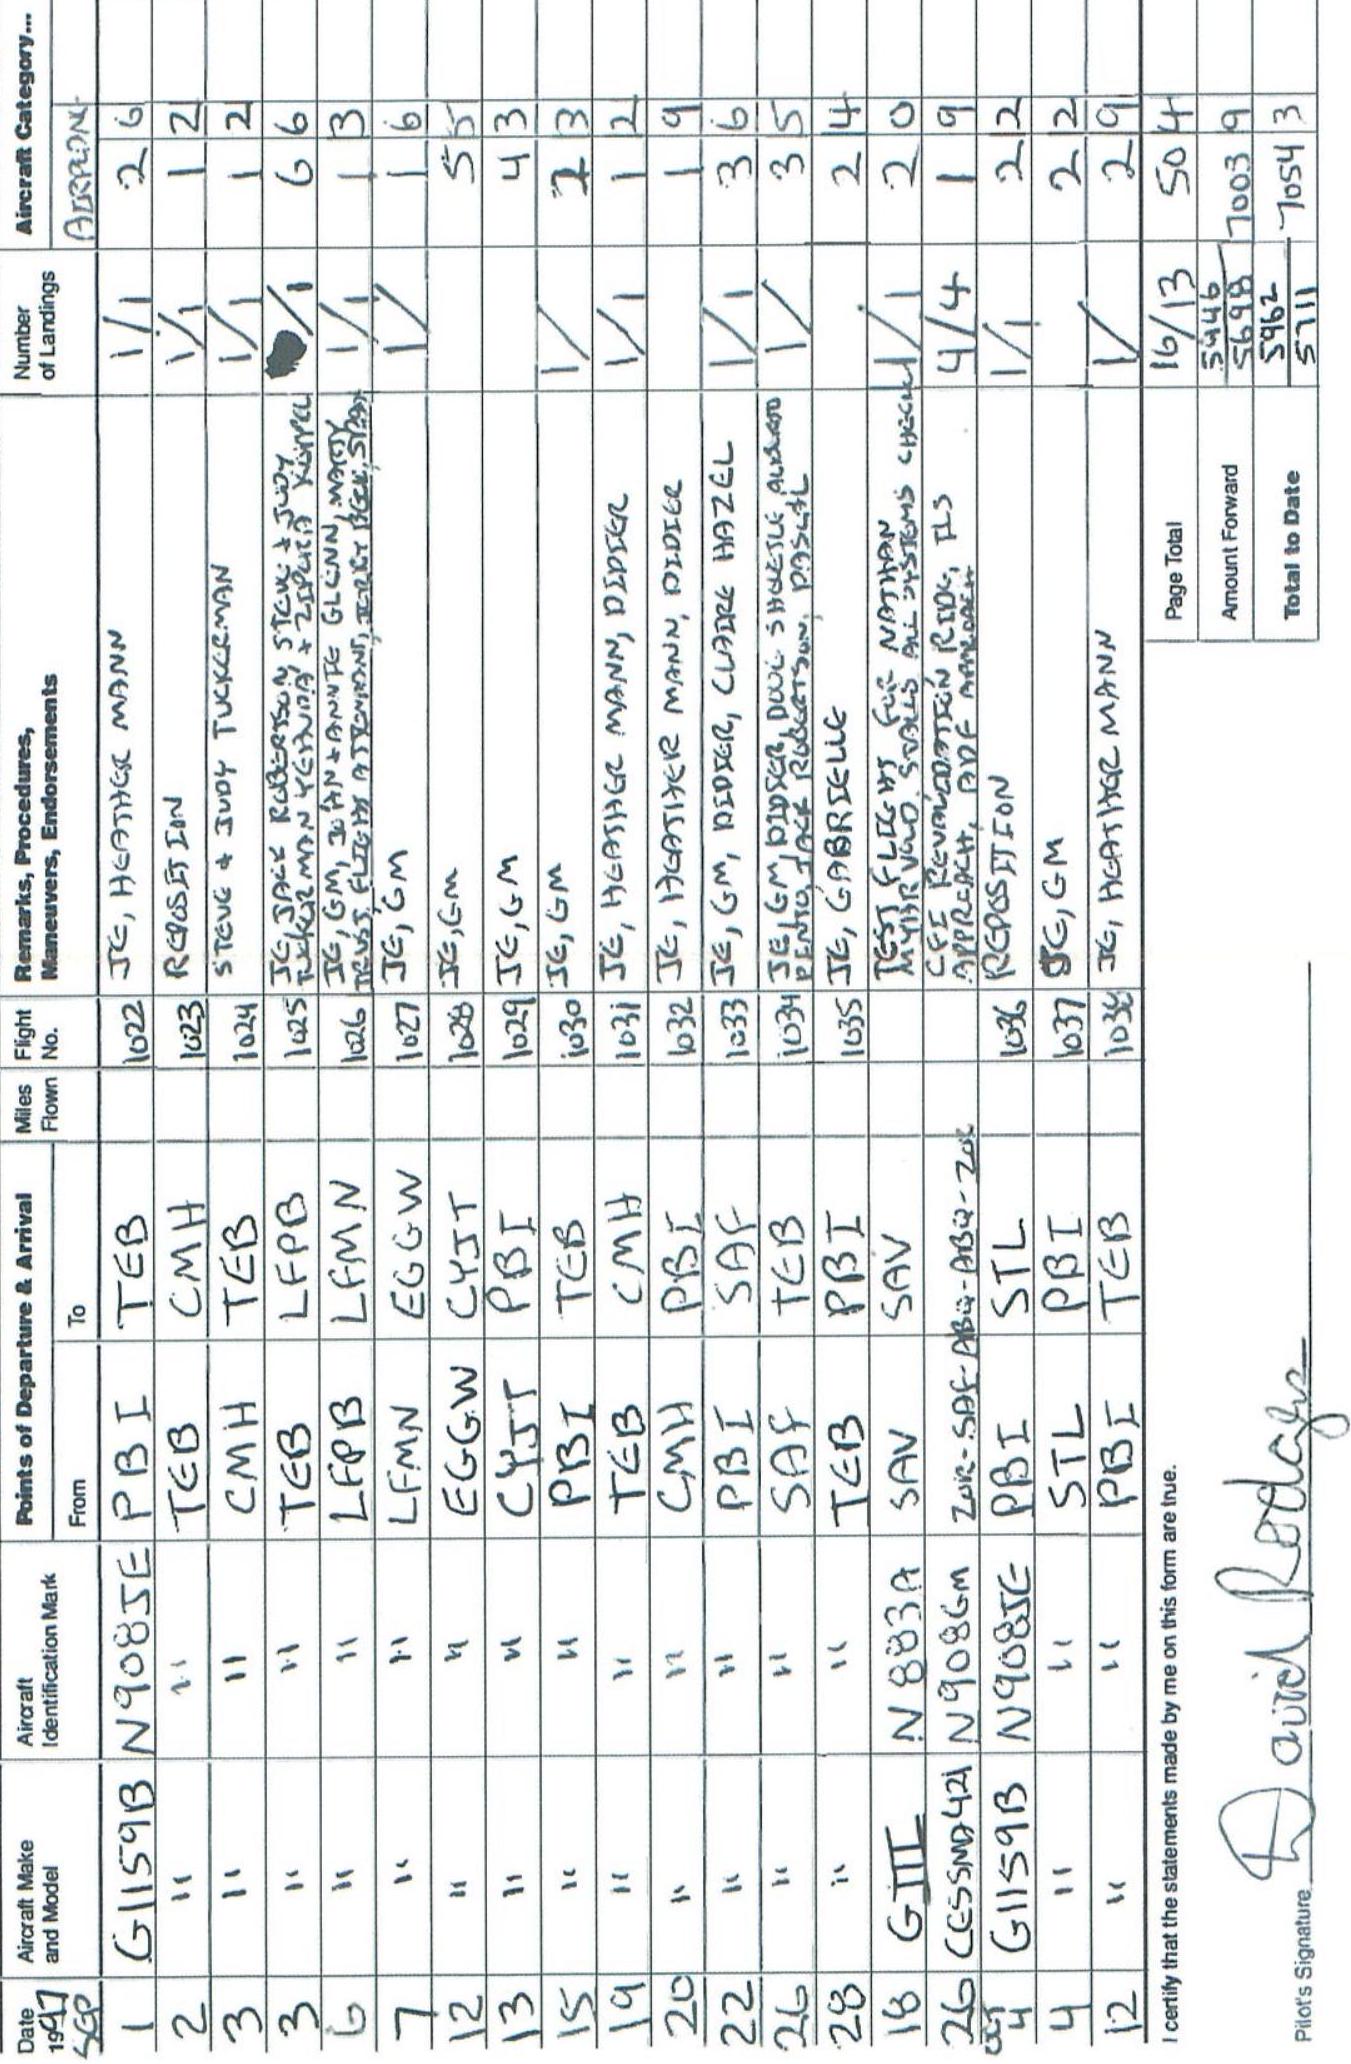 Date Aircraft Make and Model Aircraft Identification Mark Points of Departure & Arrival Miles Flown Flight No. Remarks, Procedures, Maneuvers, Endorsements Number of Landings Aircraft Category...
1997 From To AIRPLANE
SEP
1 G1159B N908JE PBI TEB 1022 JE, HEATHER MANN 1/1 2 6
2 " " TEB CMH 1023 REPOSITION 1/1 1 2
3 " " CMH TEB 1024 STEVE & JUDY TUCKERMAN 1/1 1 2
3 " " TEB LFPB 1025 JE, JACK ROBERTSON, STEVE & JUDY TUCKERMAN /1 6 6
6 " " LFPB LFMN 1026 JE, GM, ANNIE GLENN, MARTY FLIGHT ATTENDANT, 1/1 1 3
7 " " LFMN EGGW 1027 JE, GM 1/ 1 6
12 " " EGGW CYJT 1028 JE, GM 5 5
13 " " CYJT PBI 1029 JE, GM 4 3
15 " " PBI TEB 1030 JE, GM 1/ 2 3
19 " " TEB CMH 1031 JE, HEATHER MANN, DIDIER 1/1 1 2
20 " " CMH PBI 1032 JE, HEATHER MANN, DIDIER 1 9
22 " " PBI SAF 1033 JE, GM, DIDIER, CLAIRE HAZEL 1/1 3 6
26 " " SAF TEB 1034 JE, GM, DIDIER, DOUG PINTO, JACK ROBERTSON, PASCAL 1/ 3 5
28 " " TEB PBI 1035 JE, GABRIELLE 2 4
18 GIII N883A SAV SAV TEST FLIGHT FOR NATHAN STALLS ALL SYSTEMS CHECK 1/1 2 0
26 CESSNA421 N908GM ZOR-SAF-ABQ-ABQ-ZOR CFI REVALIDATION RIDE, ILS APPROACH, ADF APPROACH 4/4 1 9
OCT
4 G1159B N908JE PBI STL 1036 REPOSITION 1/1 2 2
4 " " STL PBI 1037 JE, GM 2 2
12 " " PBI TEB 1038 JE, HEATHER MANN 1/ 2 9
I certify that the statements made by me on this form are true.
Page Total 16/13 50 4
Amount Forward 5946 5698 7003 9
Total to Date 5962 5711 7054 3
Pilot's Signature David Rodgers